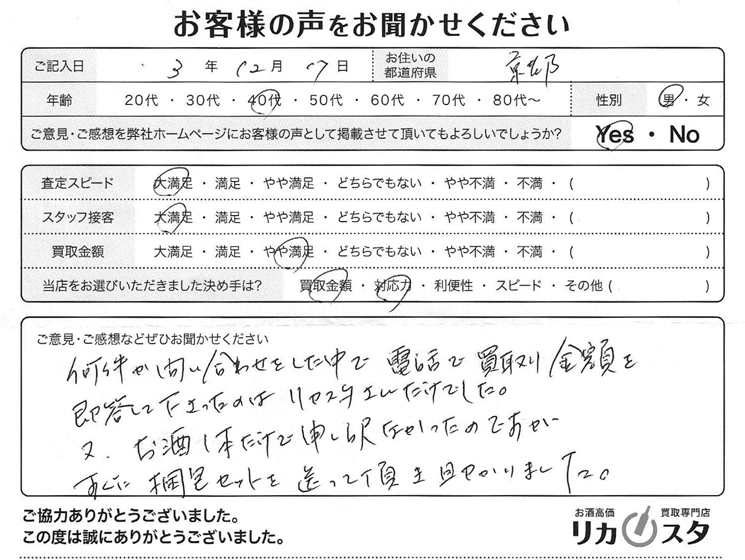 お客様の声をお聞かせください
ご記入日 3 年 12 月 17 日 お住いの都道府県 京都
年齢 20代 ・ 30代 ・ 40代 ・ 50代 ・ 60代 ・ 70代 ・ 80代〜 性別 男 ・ 女
ご意見・ご感想を弊社ホームページにお客様の声として掲載させて頂いてもよろしいでしょうか? Yes ・ No
査定スピード 大満足 ・ 満足 ・ やや満足 ・ どちらでもない ・ やや不満 ・ 不満 ・ ( )
スタッフ接客 大満足 ・ 満足 ・ やや満足 ・ どちらでもない ・ やや不満 ・ 不満 ・ ( )
買取金額 大満足 ・ 満足 ・ やや満足 ・ どちらでもない ・ やや不満 ・ 不満 ・ ( )
当店をお選びいただきました決め手は? 買取金額 ・ 対応力 ・ 利便性 ・ スピード ・ その他 ( )
ご意見・ご感想などぜひお聞かせください
何件か問い合わせをした中で 電話で買取り金額を
即答して下さったのは リカスタさんだけでした。
又、お酒1本だけで申し訳なかったのですが
すぐに 梱包セットを送って頂き 助かりました。
ご協力ありがとうございました。
この度は誠にありがとうございました。
お酒高価 買取専門店
リカスタ